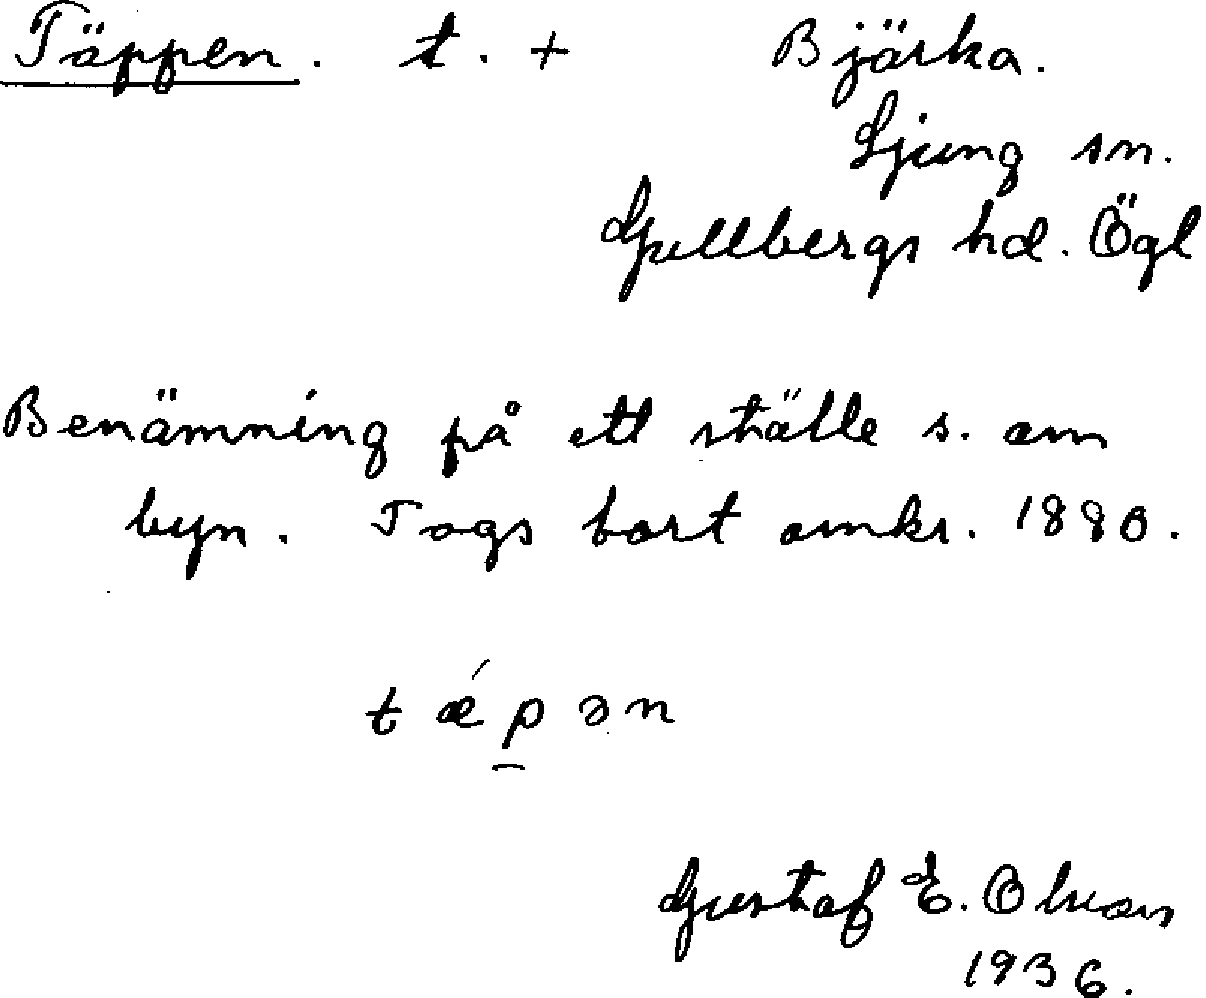 Täppen. t. + Bjärka.
Ljung sn.
Gullbergs hd. Ögl
Benämning på ett ställe s. om
byn. Togs bort omkr. 1880.
t ǽ p ə n
Gustaf E. Olsson
1936.